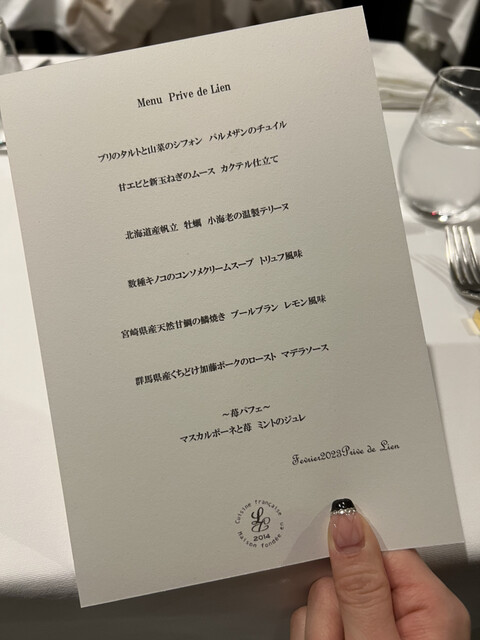 Menu Prive de Lien
ブリのタルトと山菜のシフォン パルメザンのチュイル
甘エビと新玉ねぎのムース カクテル仕立て
北海道産帆立 牡蠣 小海老の温製テリーヌ
数種キノコのコンソメクリームスープ トリュフ風味
宮崎県産天然甘鯛の鱗焼き ブールブラン レモン風味
群馬県産くちどけ加藤ポークのロースト マデラソース
~苺パフェ~
マスカルポーネと苺 ミントのジュレ
Fevrier2023Prive de Lien
Cuisine française
2014
Maison fondée en